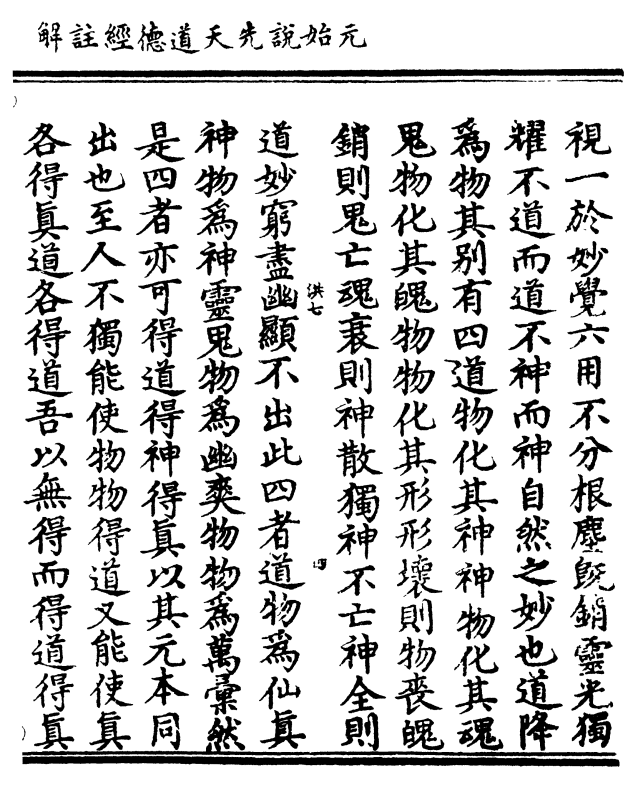 元始說先天道德經註解
視一於妙覺六用不分根塵旣銷靈光獨
耀不道而道不神而神自然之妙也道降
爲物其別有四道物化其神神物化其魂
鬼物化其魄物物化其形形壞則物喪魄
銷則鬼亡魂衰則神散獨神不亡神全則
洪七
四
道妙窮盡幽顯不出此四者道物爲仙眞
神物爲神靈鬼物爲幽爽物物爲萬彙然
是四者亦可得道得神得眞以其元本同
出也至人不獨能使物物得道又能使眞
各得眞道各得道吾以無得而得道得眞